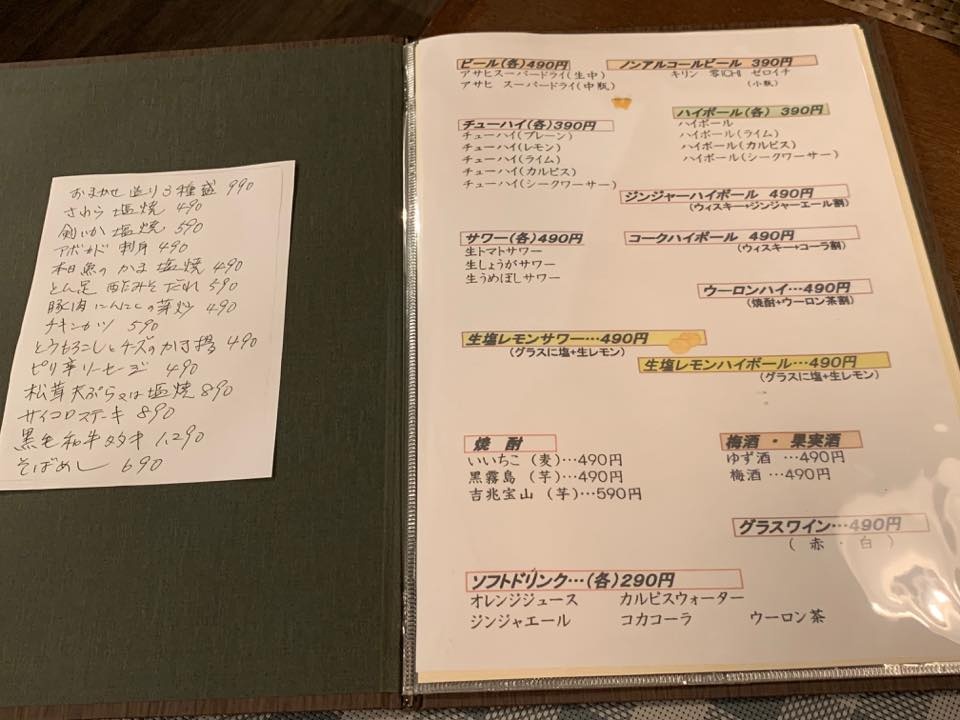 おまかせ造り3種盛 990
さわら塩焼 490
剣いか塩焼 590
アボガド刺身 490
本日魚のかま塩焼 490
とん足酢みそだれ 590
豚肉にんにくの芽炒 490
チキンカツ 590
とうもろこしとチーズのかき揚 490
ピリ辛ソーセージ 490
松茸天ぷら又は塩焼 890
サイコロステーキ 890
黒毛和牛タタキ 1,290
そばめし 690
ビール(各)490円
アサヒスーパードライ(生中)
アサヒ スーパードライ(中瓶)
ノンアルコールビール 390円
キリン 零ICHI ゼロイチ
(小瓶)
チューハイ(各)390円
チューハイ(プレーン)
チューハイ(レモン)
チューハイ(ライム)
チューハイ(カルピス)
チューハイ(シークワサー)
ハイボール(各) 390円
ハイボール
ハイボール(ライム)
ハイボール(カルピス)
ハイボール(シークワーサー)
ジンジャーハイボール 490円
(ウィスキー+ジンジャーエール割)
サワー(各)490円
生トマトサワー
生しょうがサワー
生うめぼしサワー
コークハイボール 490円
(ウィスキー+コーラ割)
ウーロンハイ…490円
(焼酎+ウーロン茶割)
生塩レモンサワー…490円
(グラスに塩+生レモン)
生塩レモンハイボール…490円
(グラスに塩+生レモン)
焼 酎
いいちこ (麦)…490円
黒霧島 (芋)…490円
吉兆宝山 (芋)…590円
梅酒・果実酒
ゆず酒 …490円
梅酒 …490円
グラスワイン…490円
( 赤 ・ 白 )
ソフトドリンク…(各)290円
オレンジジュース カルピスウォーター
ジンジャエール コカコーラ ウーロン茶